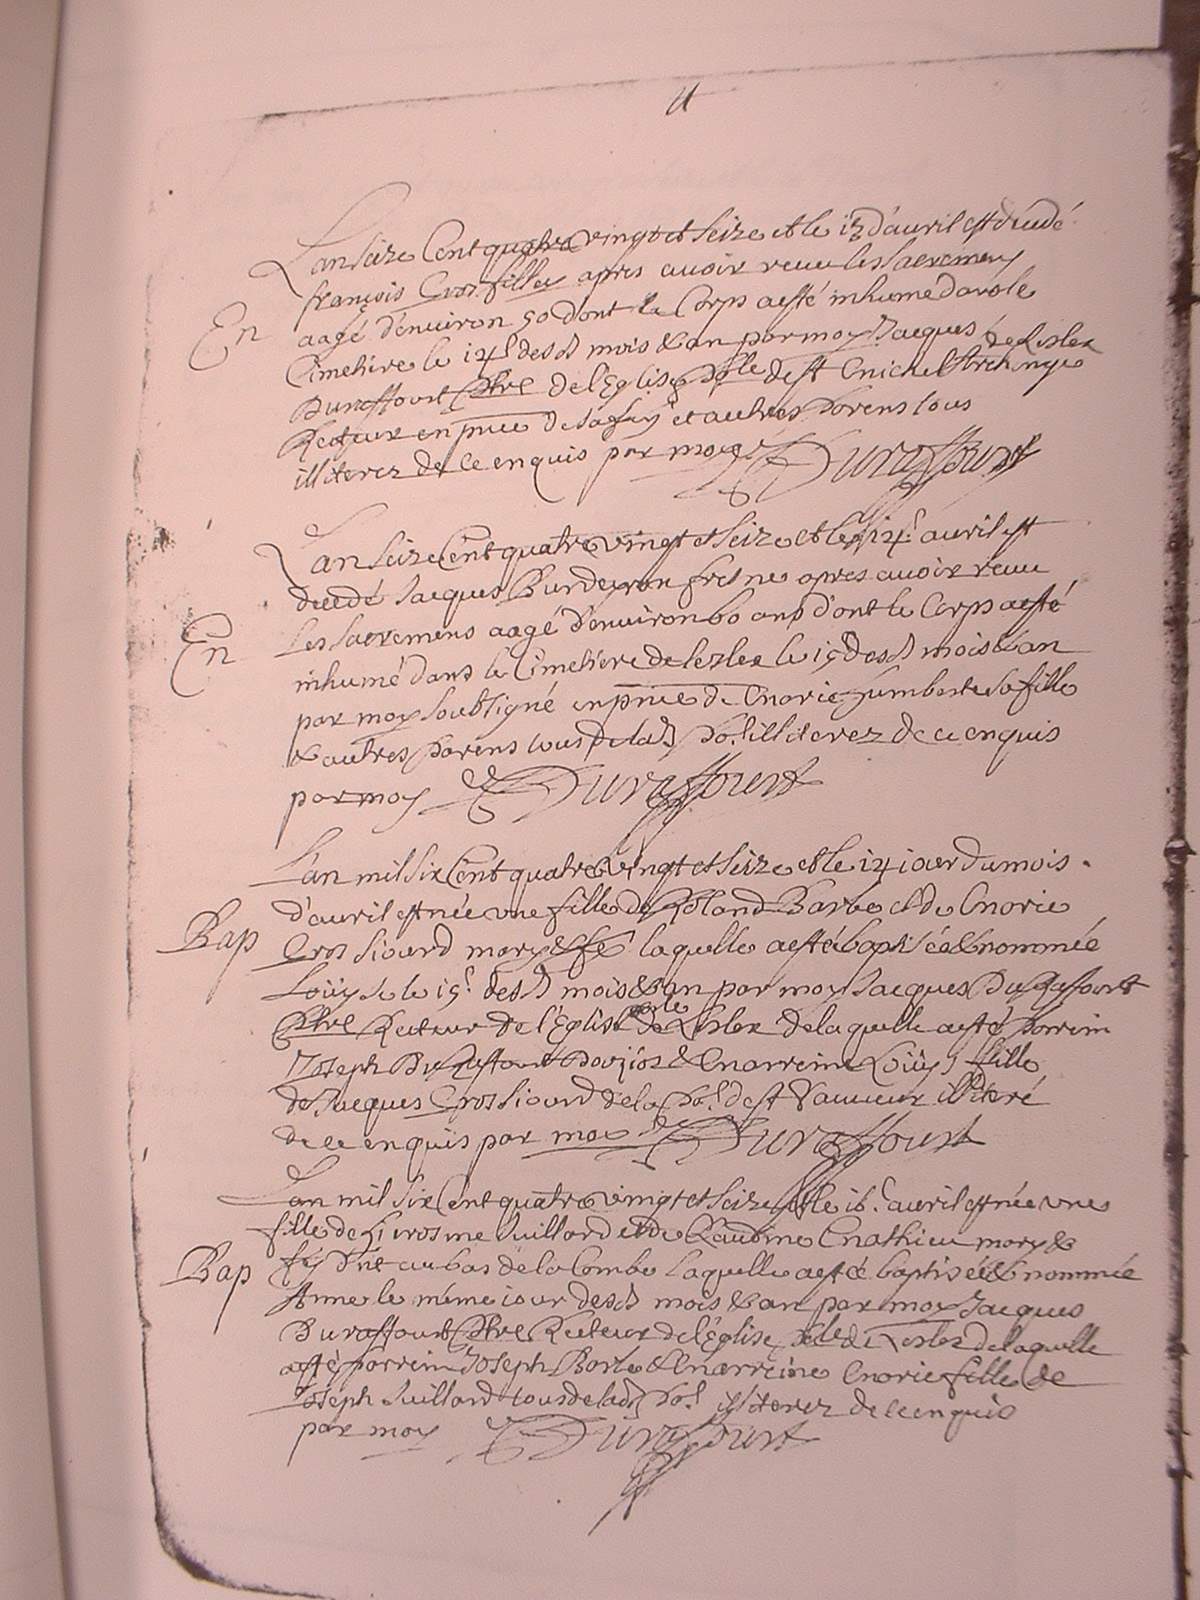 L'an seize Cent quatre vingt et seize et le 13 d'auril est decedé
françois Gros fillex apres auoir receu les sacremens
En
aagé d'enuiron 50 dont le Corps a esté inhumé dans le
Cimetiere le 14e desd mois & an par moy Jacques
Duraffourt Pbre de l'Eglise de Lezlex
Recteur en pnce de et autres parens tous
illiterez de ce enquis par moy Duraffourt
L'an seize Cent quatre vingt et seize et le 14e auril est
decedé Jacques Burdeyron apres auoir receu
En
les sacremens aagé d'enuiron 60 ans d'ont le Corps a esté
inhumé dans le Cimetiere de lezlex le 15 desd mois & an
par moy soubsigné en pnce de Marie humberte sa fille
& autres parens tous de lad illiterez de ce enquis
par moy Duraffourt
L'an mil six Cent quatre vingt et seize et le 14 iour du mois
d'auril est née vne fille de Roland Barbe et de Marie
Bap
Gros siourd mary & fe laquelle a esté baptisée & nommée
Loüyse le 15e desd mois & an par moy Jacques Duraffourt
Pbre Recteur de l'Eglise de Lezlex de laquelle a esté parrein
Joseph Duraffourt & Marreine Loüyse fille
de Jacques Gros siourd de la illiteré
de ce enquis par moy Duraffourt
L'an mil six Cent quatre vingt et seize et le 16e auril est née vne
fille de hierosme Juillard et de Claudine Mathieu mary &
Bap
fe du bas de la Combe laquelle a esté baptisée & nommée
Anne le méme iour desd mois & an par moy Jacques
Duraffourt Pbre Recteur de l'église de Lezlex de laquelle
a esté parrein Joseph Barbe & Marreine Marie fille de
Joseph Juillard tous de lad illiterez de ce enquis
par moy Duraffourt